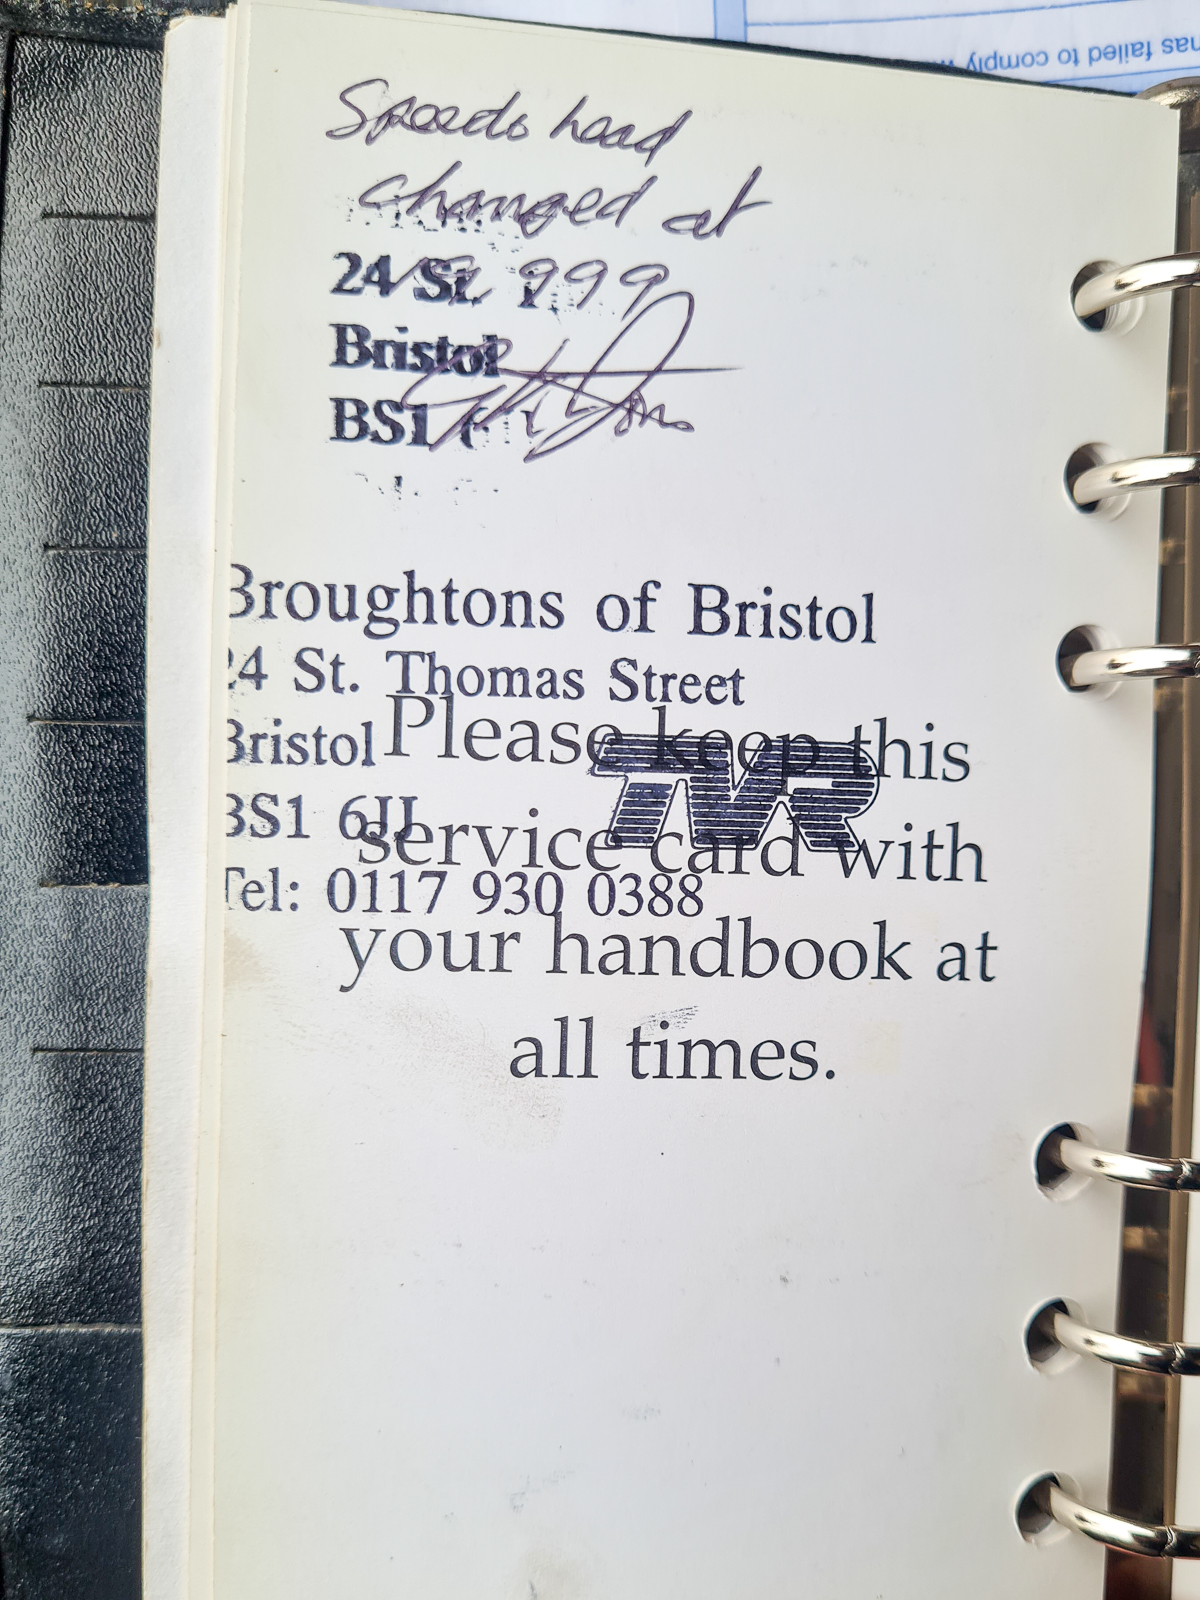 has failed to comply
Speedo head
changed at
24 St.
999
Bristol
BS1
Broughtons of Bristol
24 St. Thomas Street
Bristol
Please keep this
TVR
BS1 6JJ
service card with
Tel: 0117 930 0388
your handbook at
all times.